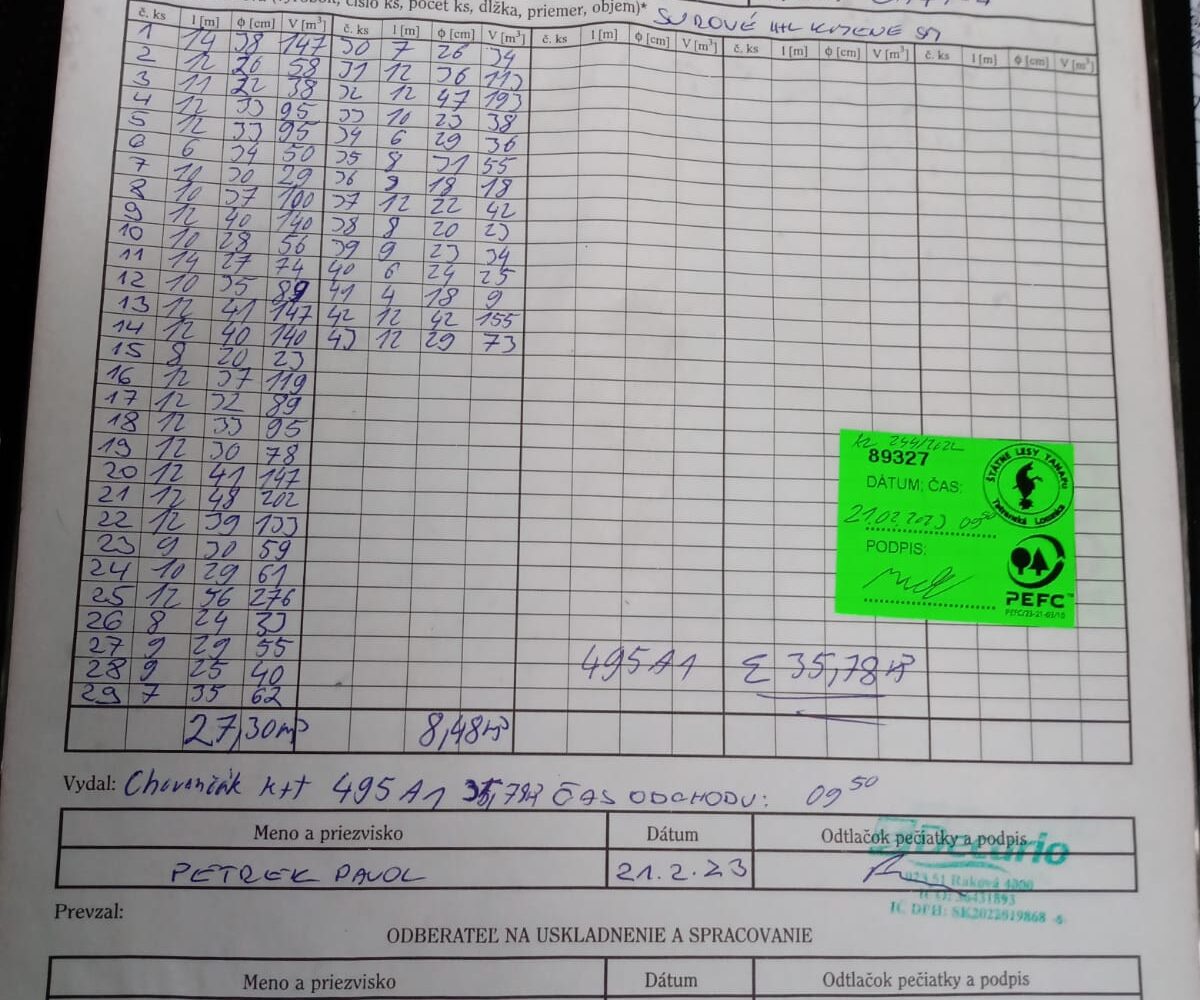 číslo ks, počet ks, dĺžka, priemer, objem)* SUROVÉ KMENE SM
č. ks l [m] ϕ [cm] V [m³] č. ks l [m] ϕ [cm] V [m³] č. ks l [m] ϕ [cm] V [m³] č. ks l [m] ϕ [cm] V [m³] č. ks l [m] ϕ [cm] V [m³]
1 14 38 147 30 7 26 34
2 12 26 58 31 12 36 113
3 11 22 38 32 12 47 193
4 12 33 95 33 10 23 38
5 12 33 95 34 6 29 36
6 6 34 50 35 8 31 55
7 10 30 29 36 9 18 18
8 10 37 100 37 12 22 42
9 12 40 140 38 8 20 23
10 10 28 56 39 9 23 34
11 14 27 74 40 6 24 25
12 10 35 89 41 4 18 9
13 12 41 147 42 12 42 155
14 12 40 140 43 12 29 73
15 8 20 23
16 12 37 119
17 12 32 89
18 12 33 95
19 12 30 78
20 12 41 147
21 12 48 202
22 12 39 133
23 9 30 59
24 10 29 61
25 12 56 276
26 8 24 33
27 9 29 55
28 9 25 40
29 7 35 62
495 A1 Σ 35,78 m³
27,30 m³ 8,48 m³
244/2022
89327
ŠTÁTNE LESY TANAPu
Tatranská Lomnica
DÁTUM; ČAS:
21.02.2023 09⁵⁰
PODPIS:
PEFC™
Vydal: 495 A1 35,78 ČAS ODCHODU: 09⁵⁰
Meno a priezvisko Dátum Odtlačok pečiatky a podpis
PETREK PAVOL 21.2.23
023 51 Raková
IČ DPH: SK2022019868
Prevzal:
ODBERATEĽ NA USKLADNENIE A SPRACOVANIE
Meno a priezvisko Dátum Odtlačok pečiatky a podpis